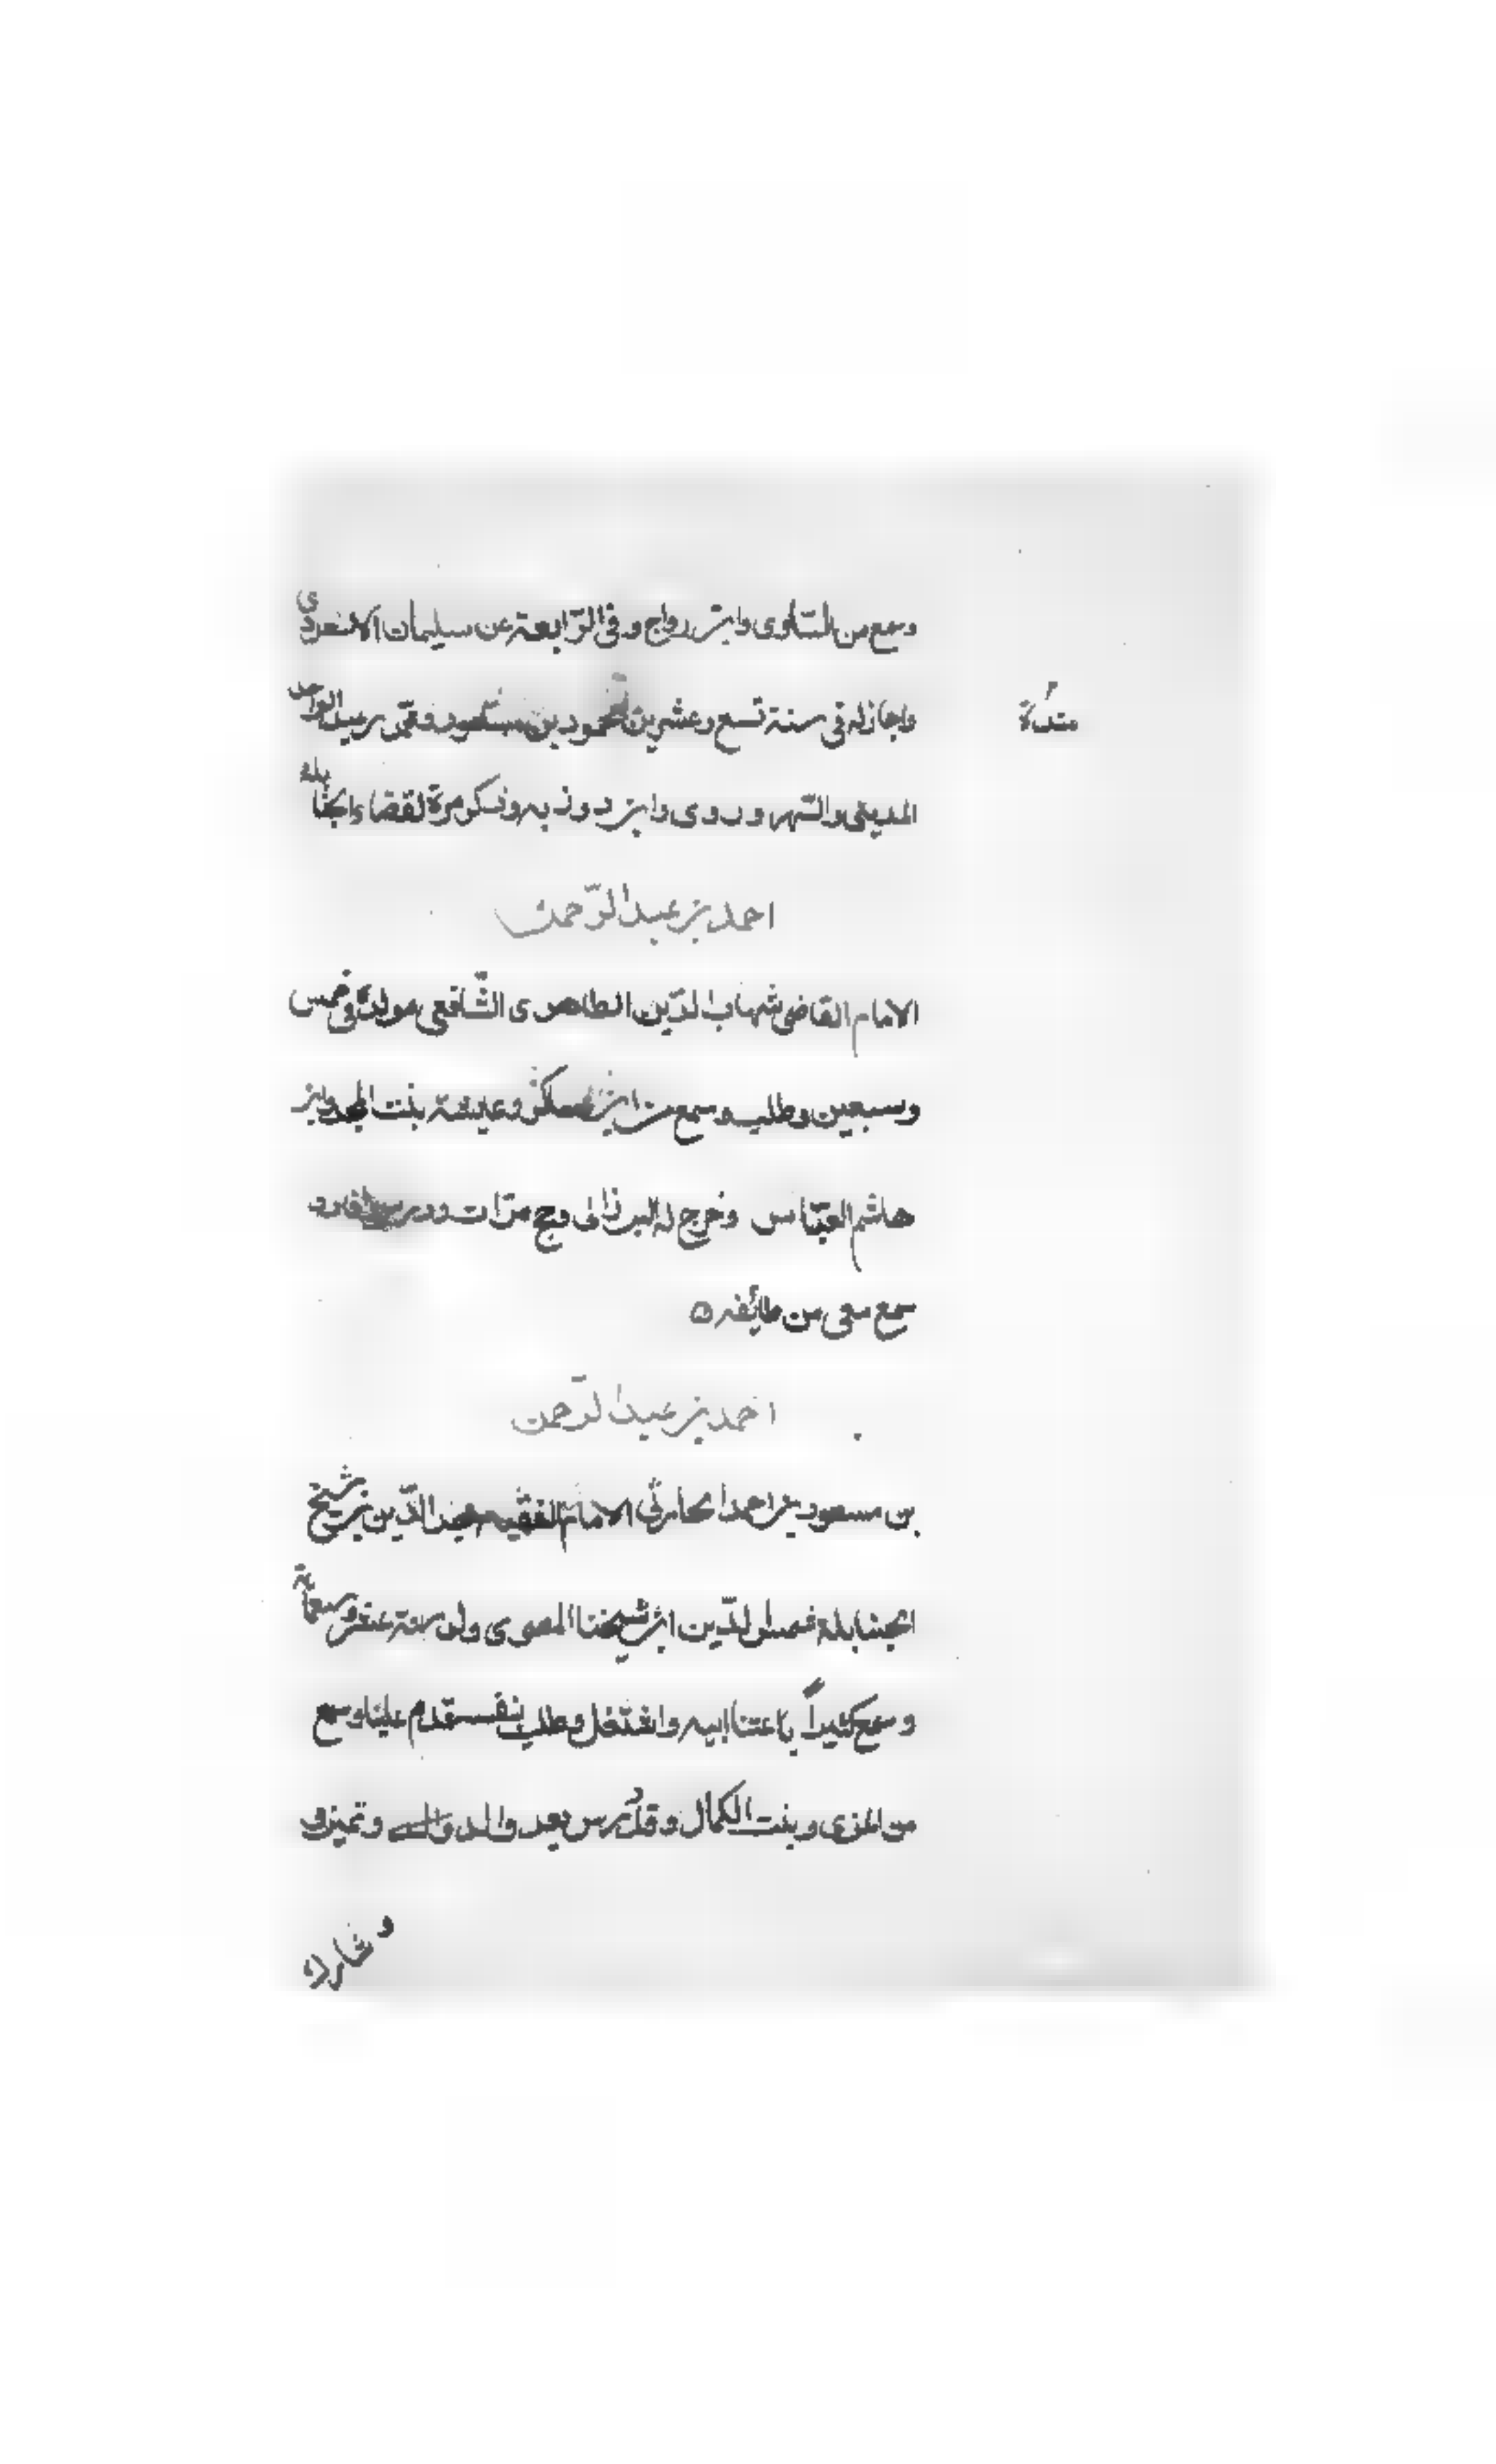 وسمع من الساوى وابن رواج وفى الرابعة عن سليمان الاسعردى
واجاز له فى سنة تسع وعشرين محمود بن وعمر بن عبد الواحد
مدة
المدينى والسهروردى وابن روزبه وذكر مرة لقضاء الحنابلة
احمد بن عبد الرحمن
الامام القاضى شهاب الدين الظاهرى الشافعى مولده فى خمس
وسبعين وطلب وسمع من ابن وعايشة بنت المجد وابن
هاشم العباس وخرج له البرزالى وحج مرات ودرس
سمع معى من طائفه ه
احمد بن عبد الرحمن
بن مسعود بن احمد الحارثى الامام الفقيه الدين بن شيخ
الحنابلة شمس الدين ابن شيخنا المصرى ولد سنة عشر وسبعمائة
وسمع كثيراً باعتنا ابيه واشتغل وطلب بنفسه قدم علينا وسمع
من المزى وبنت الكمال وقد درس بعد والده وتميز و
وشارك